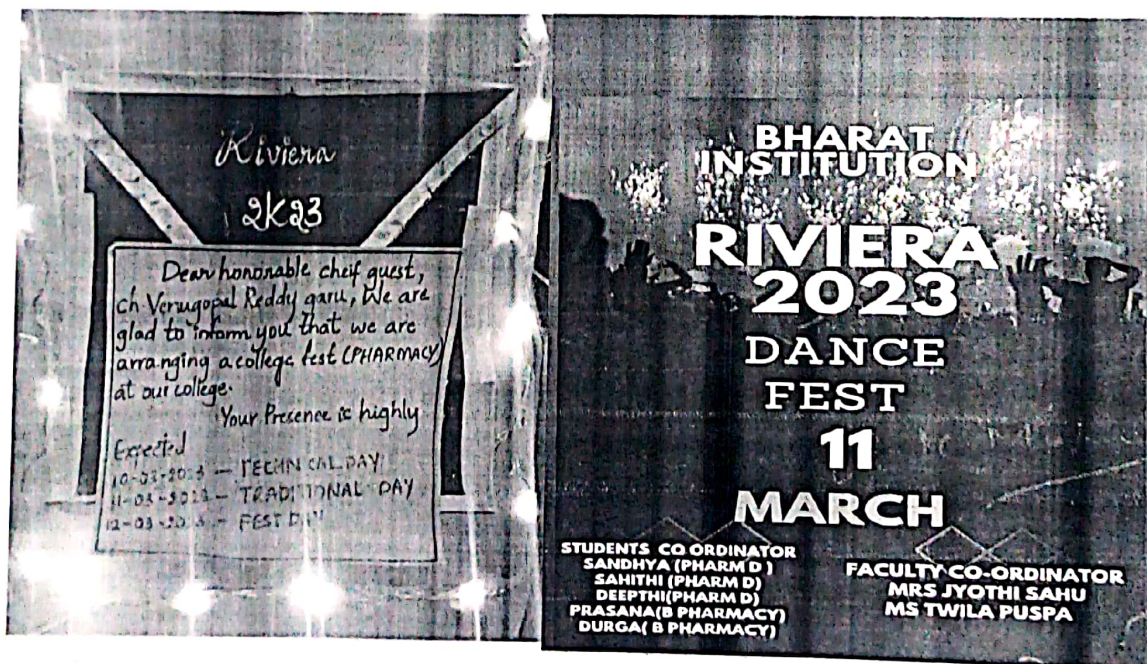 Riviera
2K23
Dear honorable cheif guest,
ch Venugopal Reddy garu, We are
glad to inform you that we are
arranging a college fest (PHARMACY)
at our college.
Your Presence is highly
Expected
10-03-2023 - TECHNICAL DAY
11-03-2023 - TRADITIONAL DAY
12-03-2023 - FEST DAY
BHARAT
INSTITUTION
RIVIERA
2023
DANCE
FEST
11
MARCH
STUDENTS CO ORDINATOR
SANDHYA (PHARM D )
SAHITHI (PHARM D)
DEEPTHI(PHARM D)
PRASANA(B PHARMACY)
DURGA( B PHARMACY)
FACULTY CO-ORDINATOR
MRS JYOTHI SAHU
MS TWILA PUSPA